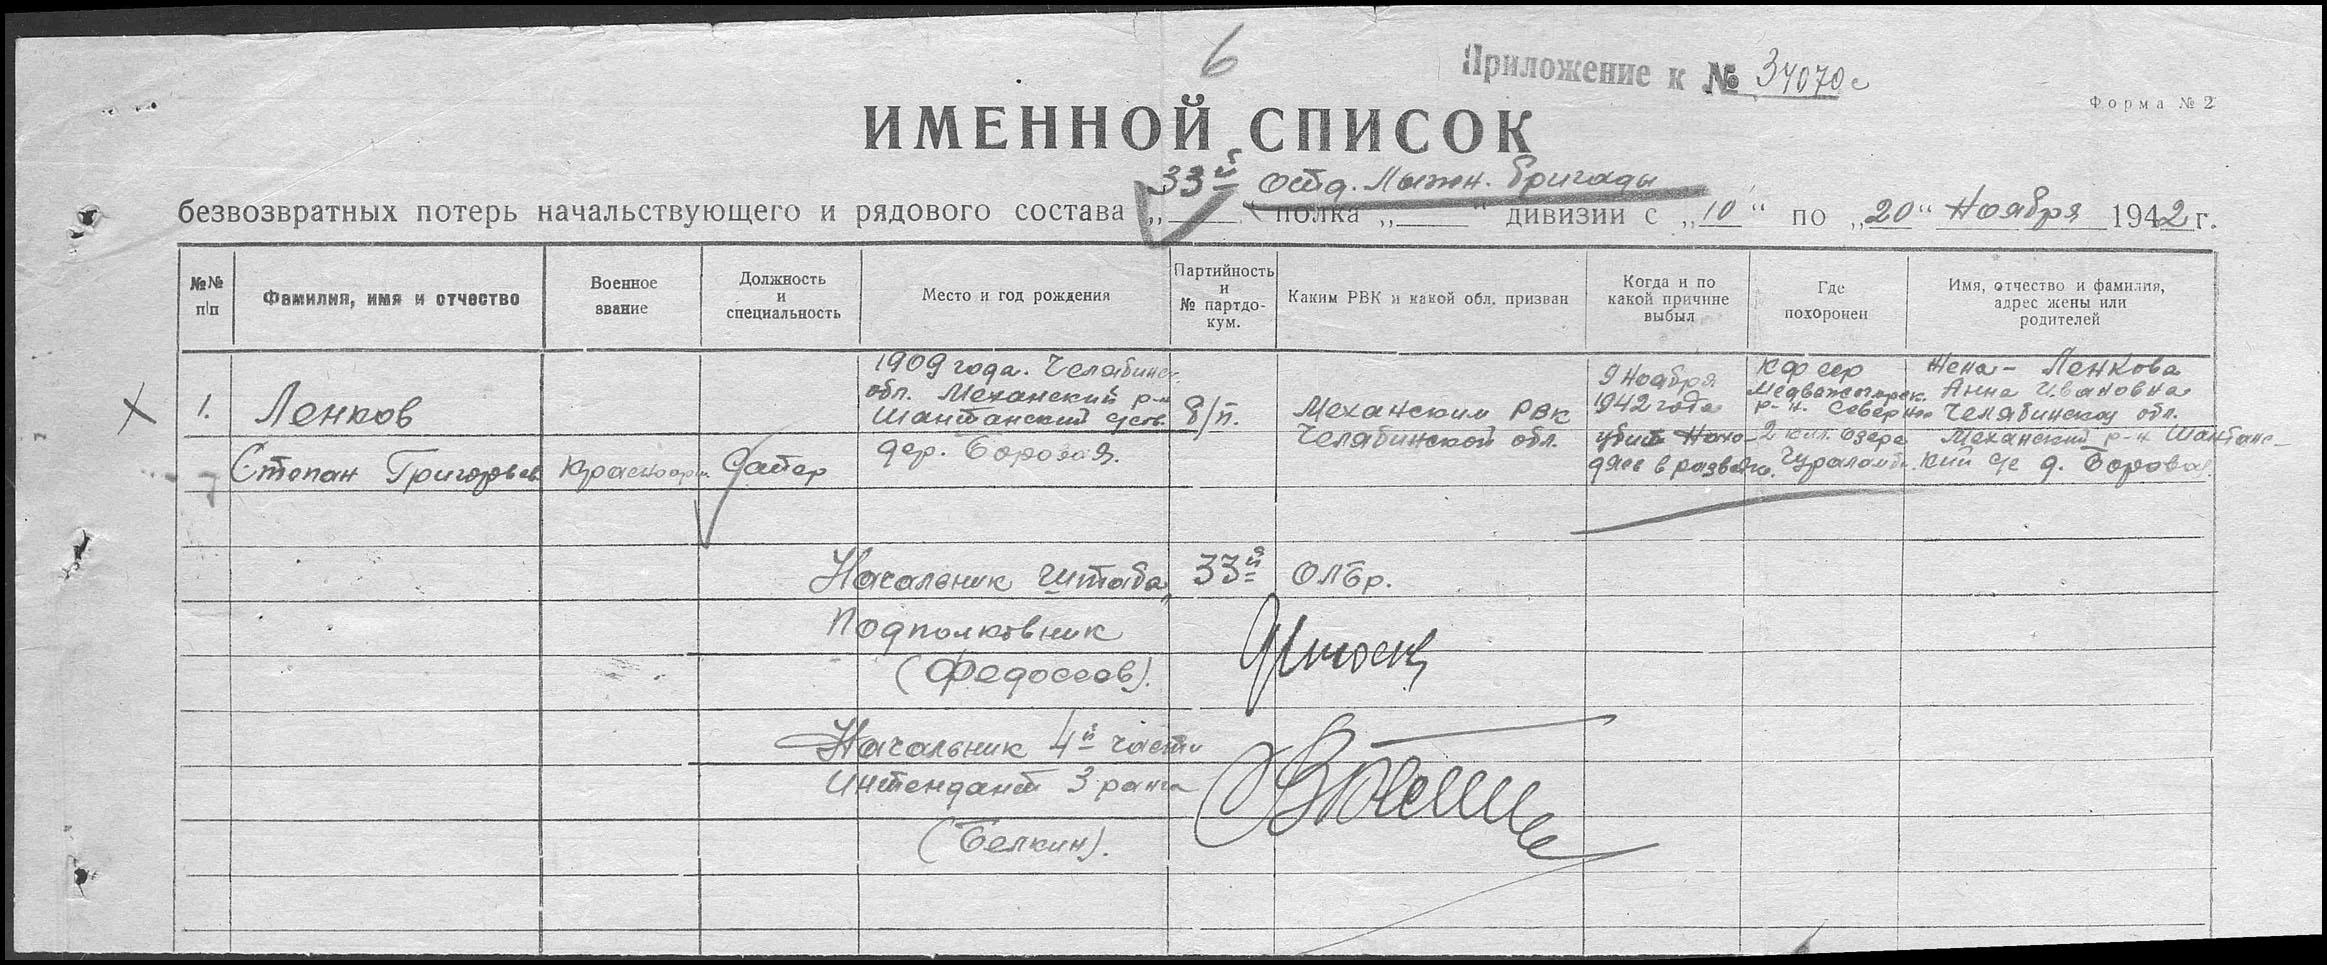 6
Приложение к № 34070с
Форма № 2
ИМЕННОЙ СПИСОК
33й отд. Лыжн. бригады
безвозвратных потерь начальствующего и рядового состава „ “ полка „ “ дивизии с „10“ по „20“ Ноября 1942 г.
№№ п|п
Фамилия, имя и отчество
Военное звание
Должность и специальность
Место и год рождения
Партийность и № партдокум.
Каким РВК и какой обл. призван
Когда и по какой причине выбыл
Где похоронен
Имя, отчество и фамилия, адрес жены или родителей
1.
Ленков
Степан Григорьев.
Красноарм.
Сапер
1909 года. Челябинс.
обл. Механский р-н
Шантанский с/сов.
дер. Боровая.
б/п.
Механским РВК
Челябинской обл.
9 Ноября
1942 года
убит Нахо-
дясь в разведке.
КФССР
Медвежьегорск.
р-н. Севернее
2 кил. озера
Жена - Ленкова
Анна Ивановна
Челябинской обл.
Механский р-н Шантанс-
кий с/с д. Боровая.
Начальник штаба 33й ОЛБр.
Подполковник
(Федосеев).
Начальник 4й части
Интендант 3 ранга
(Белкин).